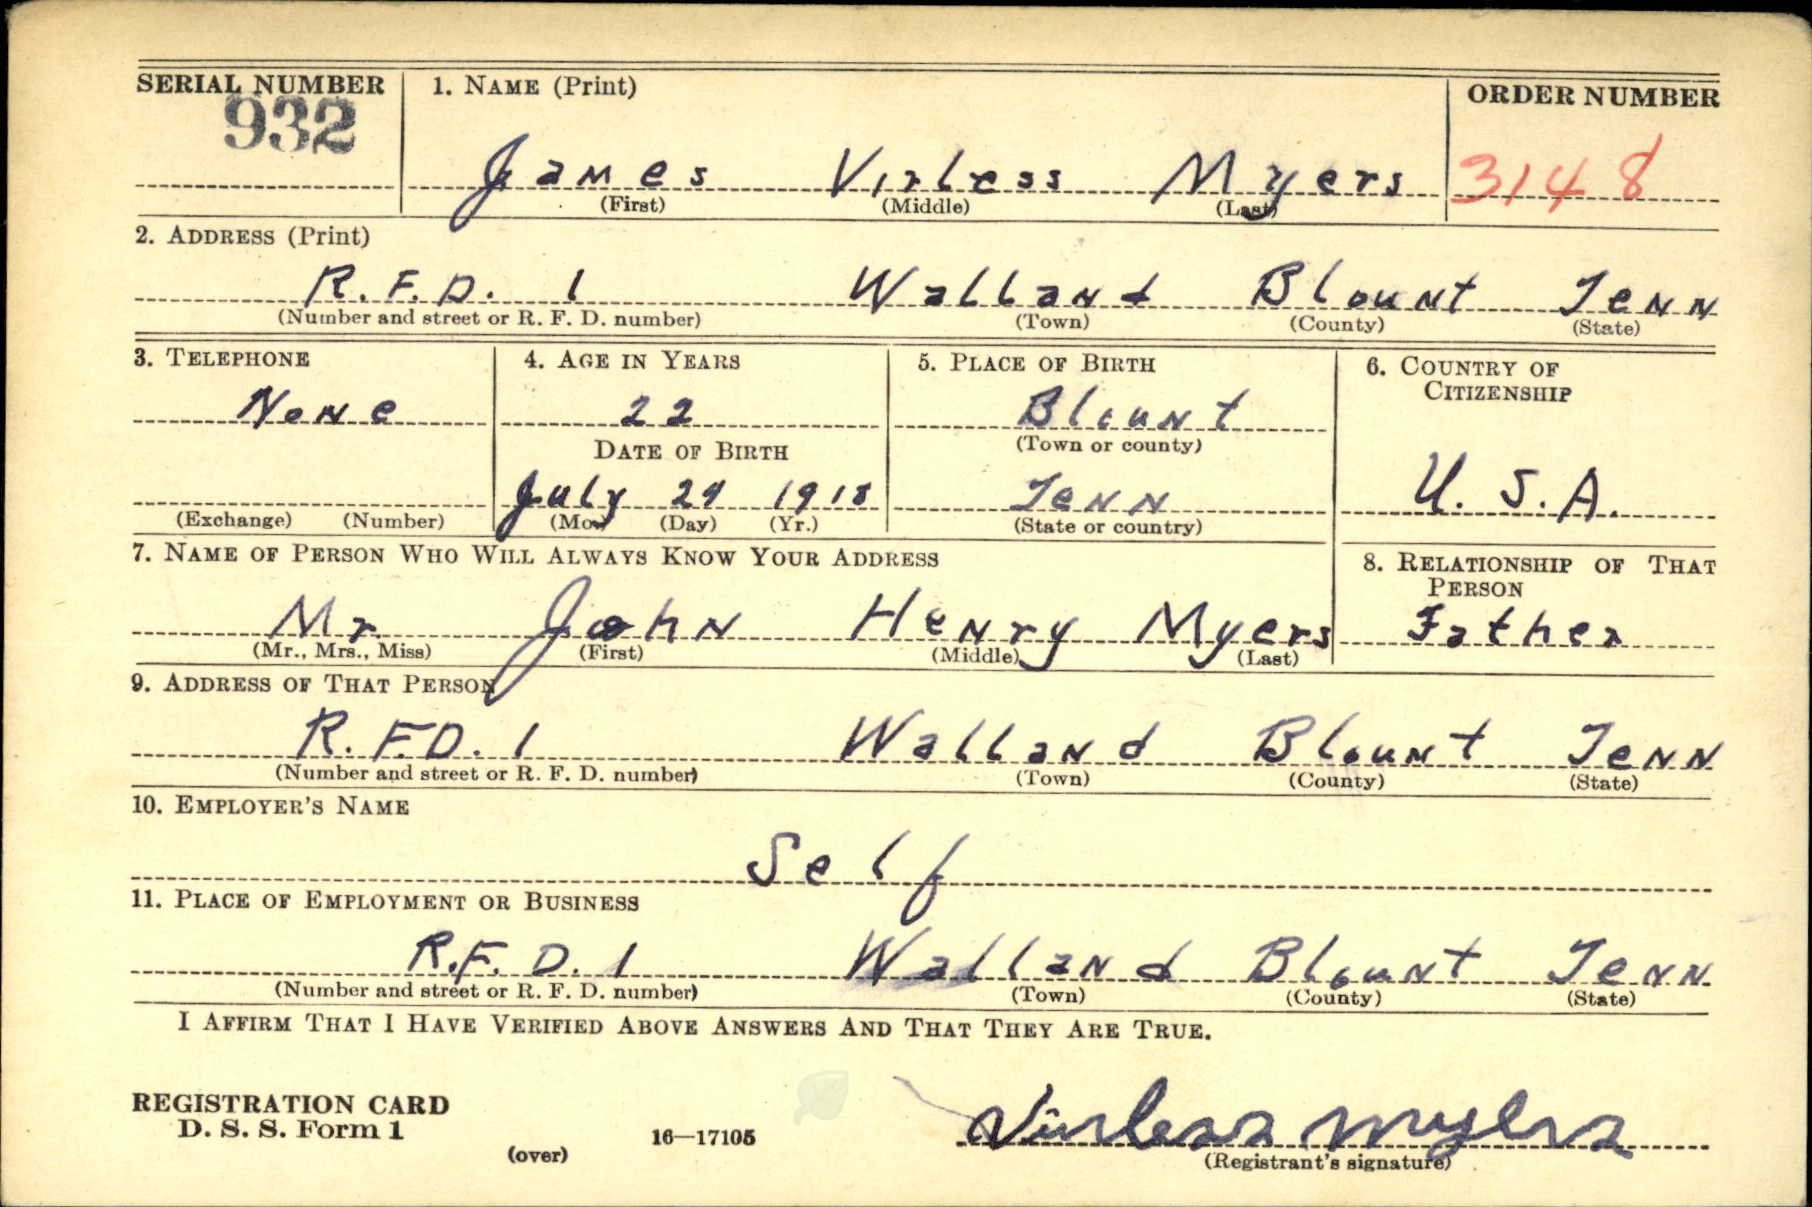 SERIAL NUMBER 1. NAME (Print) ORDER NUMBER
932
James Virless Myers 3148
(First) (Middle) (Last)
2. ADDRESS (Print)
R.F.D. 1 Walland Blount Tenn
(Number and street or R. F. D. number) (Town) (County) (State)
3. TELEPHONE 4. AGE IN YEARS 5. PLACE OF BIRTH 6. COUNTRY OF CITIZENSHIP
None 22 Blount
DATE OF BIRTH (Town or county)
July 1918 Tenn U.S.A.
(Exchange) (Number) (Mo.) (Day) (Yr.) (State or country)
7. NAME OF PERSON WHO WILL ALWAYS KNOW YOUR ADDRESS 8. RELATIONSHIP OF THAT PERSON
Mr John Henry Myers Father
(Mr., Mrs., Miss) (First) (Middle) (Last)
9. ADDRESS OF THAT PERSON
R.F.D. 1 Walland Blount Tenn
(Number and street or R. F. D. number) (Town) (County) (State)
10. EMPLOYER'S NAME
Self
11. PLACE OF EMPLOYMENT OR BUSINESS
R.F.D. 1 Walland Blount Tenn
(Number and street or R. F. D. number) (Town) (County) (State)
I AFFIRM THAT I HAVE VERIFIED ABOVE ANSWERS AND THAT THEY ARE TRUE.
REGISTRATION CARD
D. S. S. Form 1
(over) 16—17105 Virless Myers
(Registrant's signature)